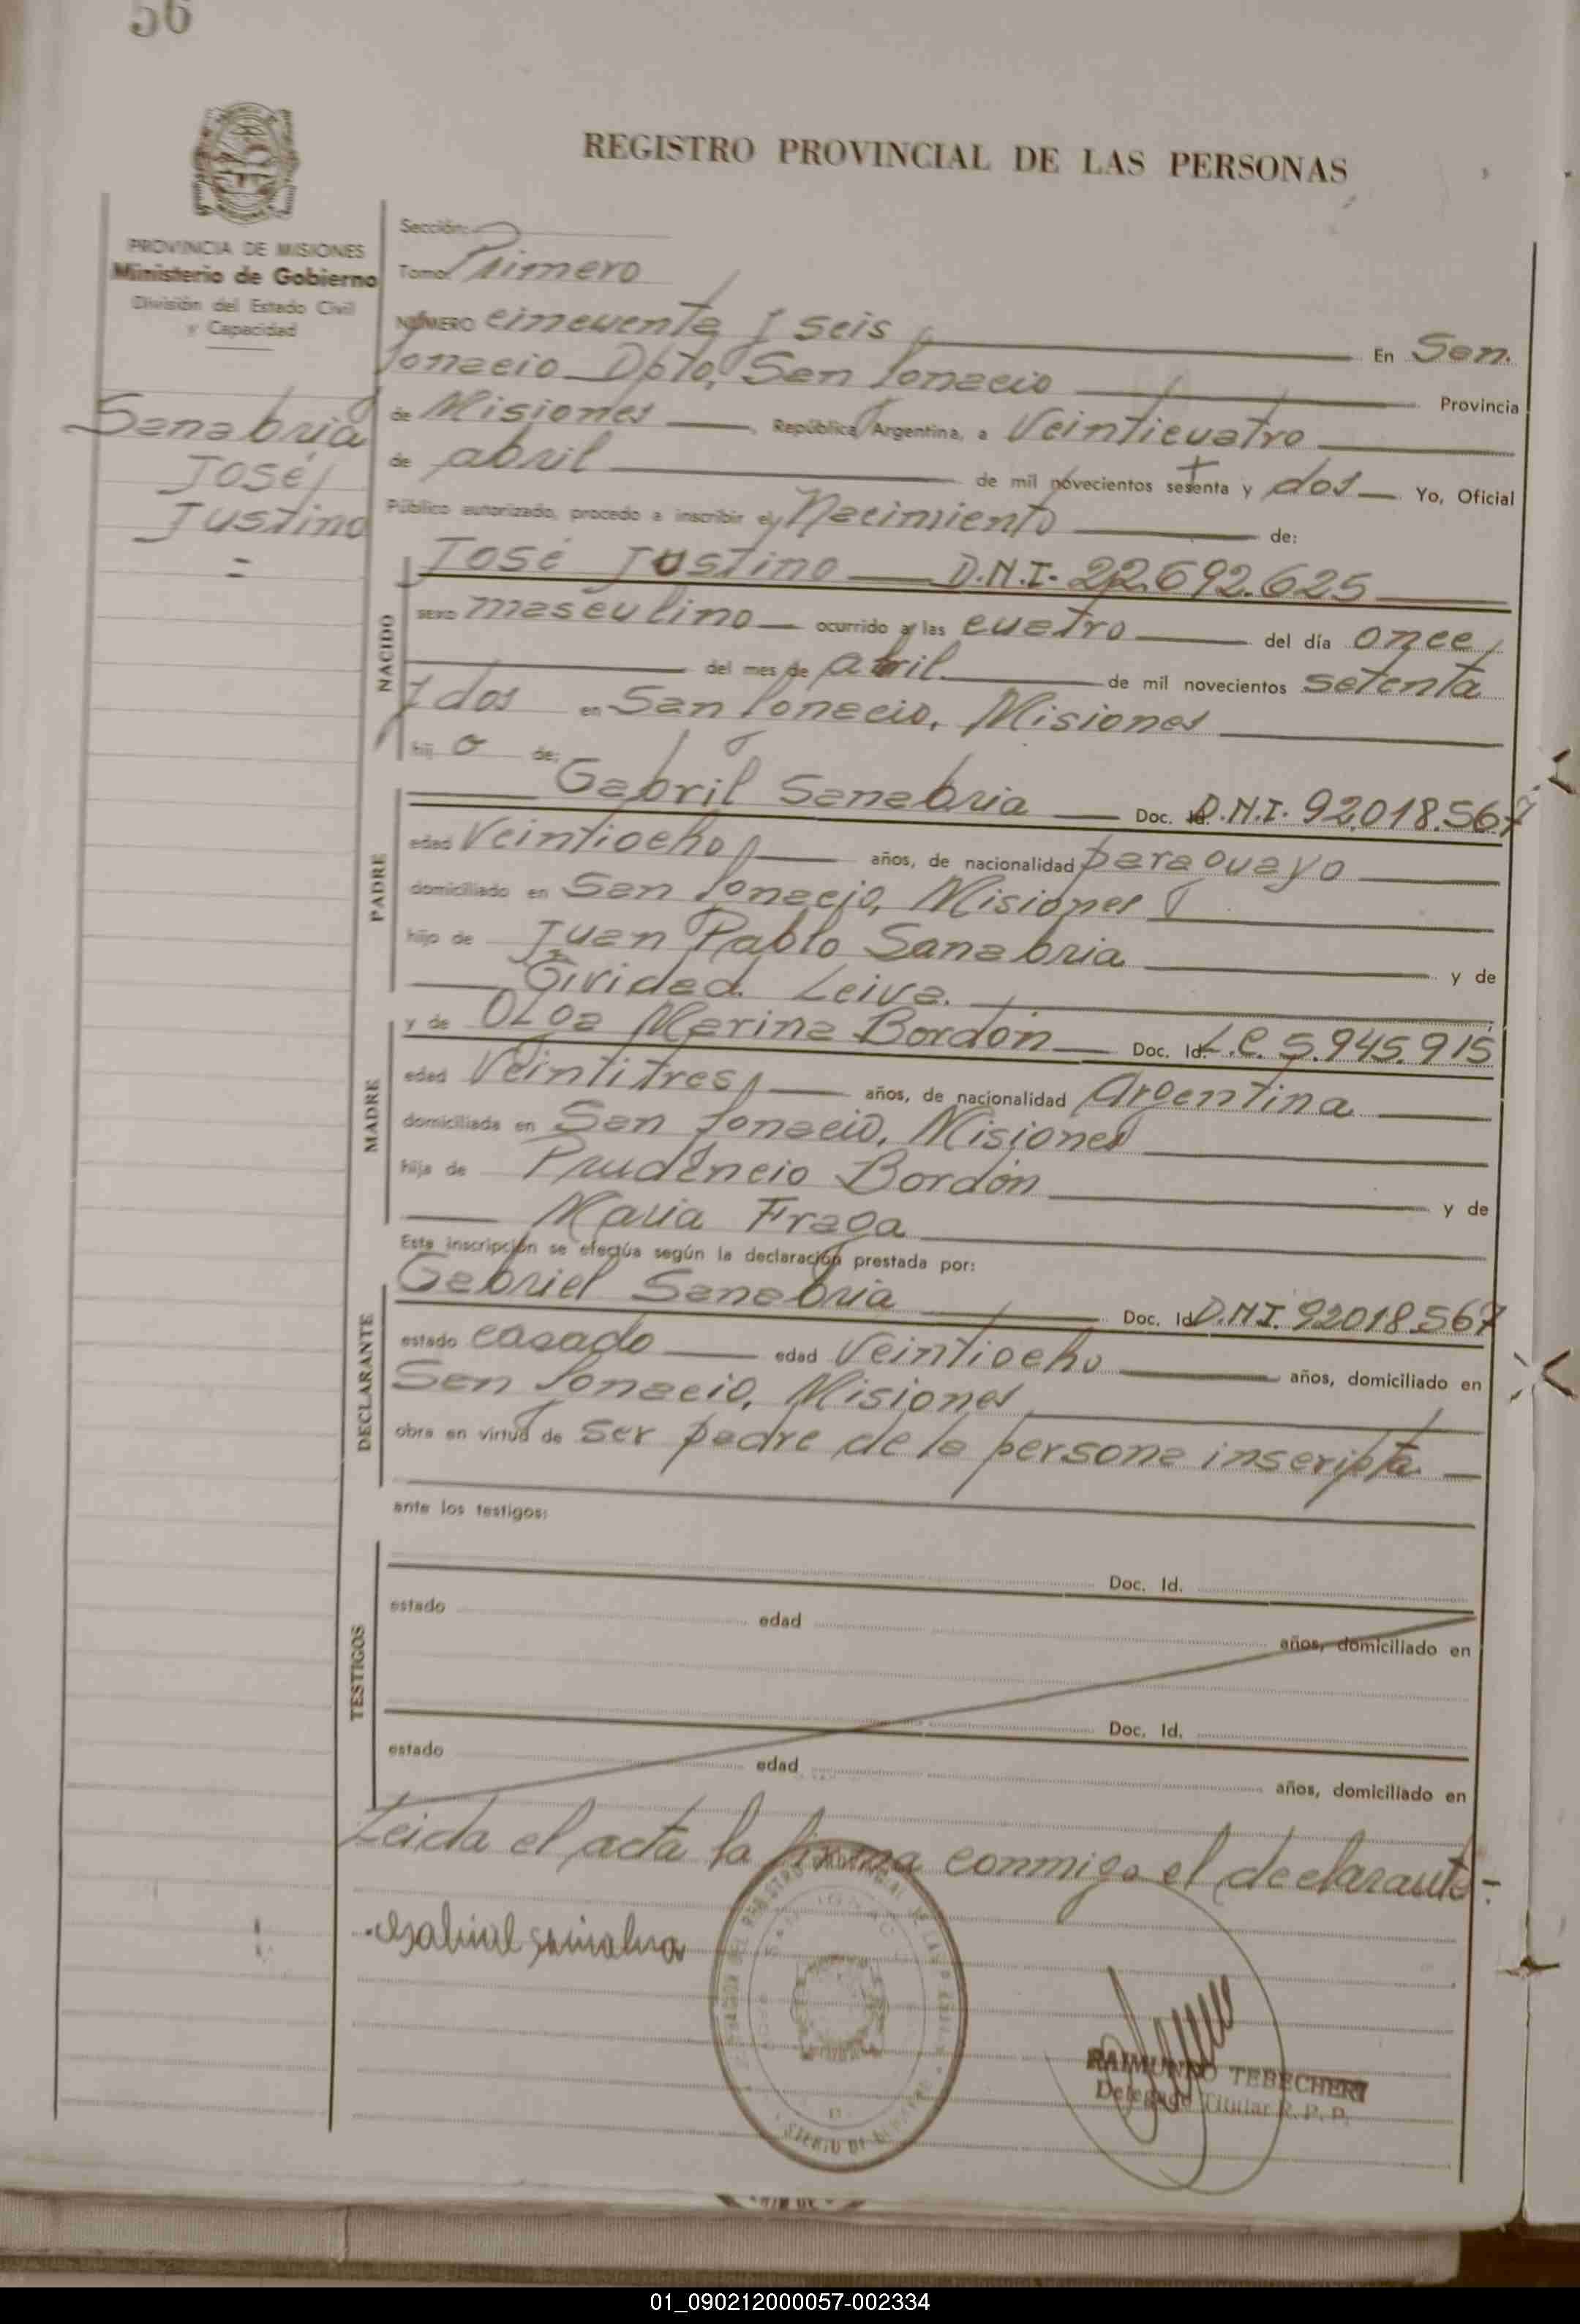 56
REGISTRO PROVINCIAL DE LAS PERSONAS
PROVINCIA DE MISIONES
Ministerio de Gobierno
División del Estado Civil
y Capacidad
Sanabria
José
Justino
Sección:
Tomo: Primero
NÚMERO cincuenta y seis En San
Ignacio Dpto, San Ignacio Provincia
de Misiones República Argentina, a Veinticuatro
de abril de mil novecientos setenta y dos Yo, Oficial
Público autorizado, procedo a inscribir el Nacimiento de:
NACIDO
José Justino D.N.I. 22.692.625
sexo masculino ocurrido a las cuatro del día once
del mes de abril de mil novecientos setenta
y dos en San Ignacio, Misiones
hij o de:
PADRE
Gabril Sanabria Doc. Id. D.N.I. 92.018.567
edad Veintiocho años, de nacionalidad paraguayo
domiciliado en San Ignacio, Misiones
hijo de Juan Pablo Sanabria y de
Leiva.
MADRE
y de Olga Marina Bordón Doc. Id. L.C. 5.945.915
edad Veintitres años, de nacionalidad Argentina
domiciliada en San Ignacio, Misiones
hija de Prudencio Bordón y de
Maria Fraga
Esta inscripción se efectúa según la declaración prestada por:
DECLARANTE
Gabriel Sanabria Doc. Id. D.N.I. 92018567
estado casado edad Veintiocho años, domiciliado en
San Ignacio, Misiones
obra en virtud de ser padre de la persona inscripta
ante los testigos:
TESTIGOS
Doc. Id.
estado edad años, domiciliado en
Doc. Id.
estado edad años, domiciliado en
Leida el acta la firma conmigo el declarante-
Gabriel Sanabria
RAIMUNDO TEBECHERI
Delegado Titular R. P. P.
01_090212000057-002334